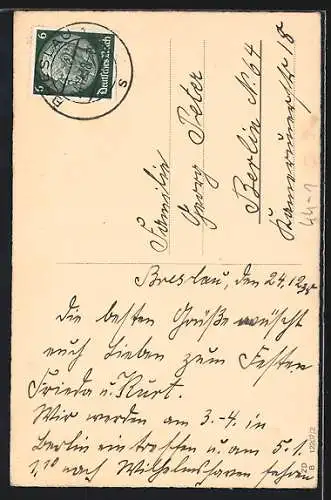 6
6
Deutsches Reich
Familie
Georg Peter
Berlin N. 64
Kameruner Str 18
44-1
Breslau, den 24.12.35
Die besten Grüße wünscht
euch Lieben zum Festen
Frieda u. Kurt.
Wir werden am 3.-4. in
Berlin eintreffen u. am 5.1.
1,10 nach Wilhelmshaven fahren